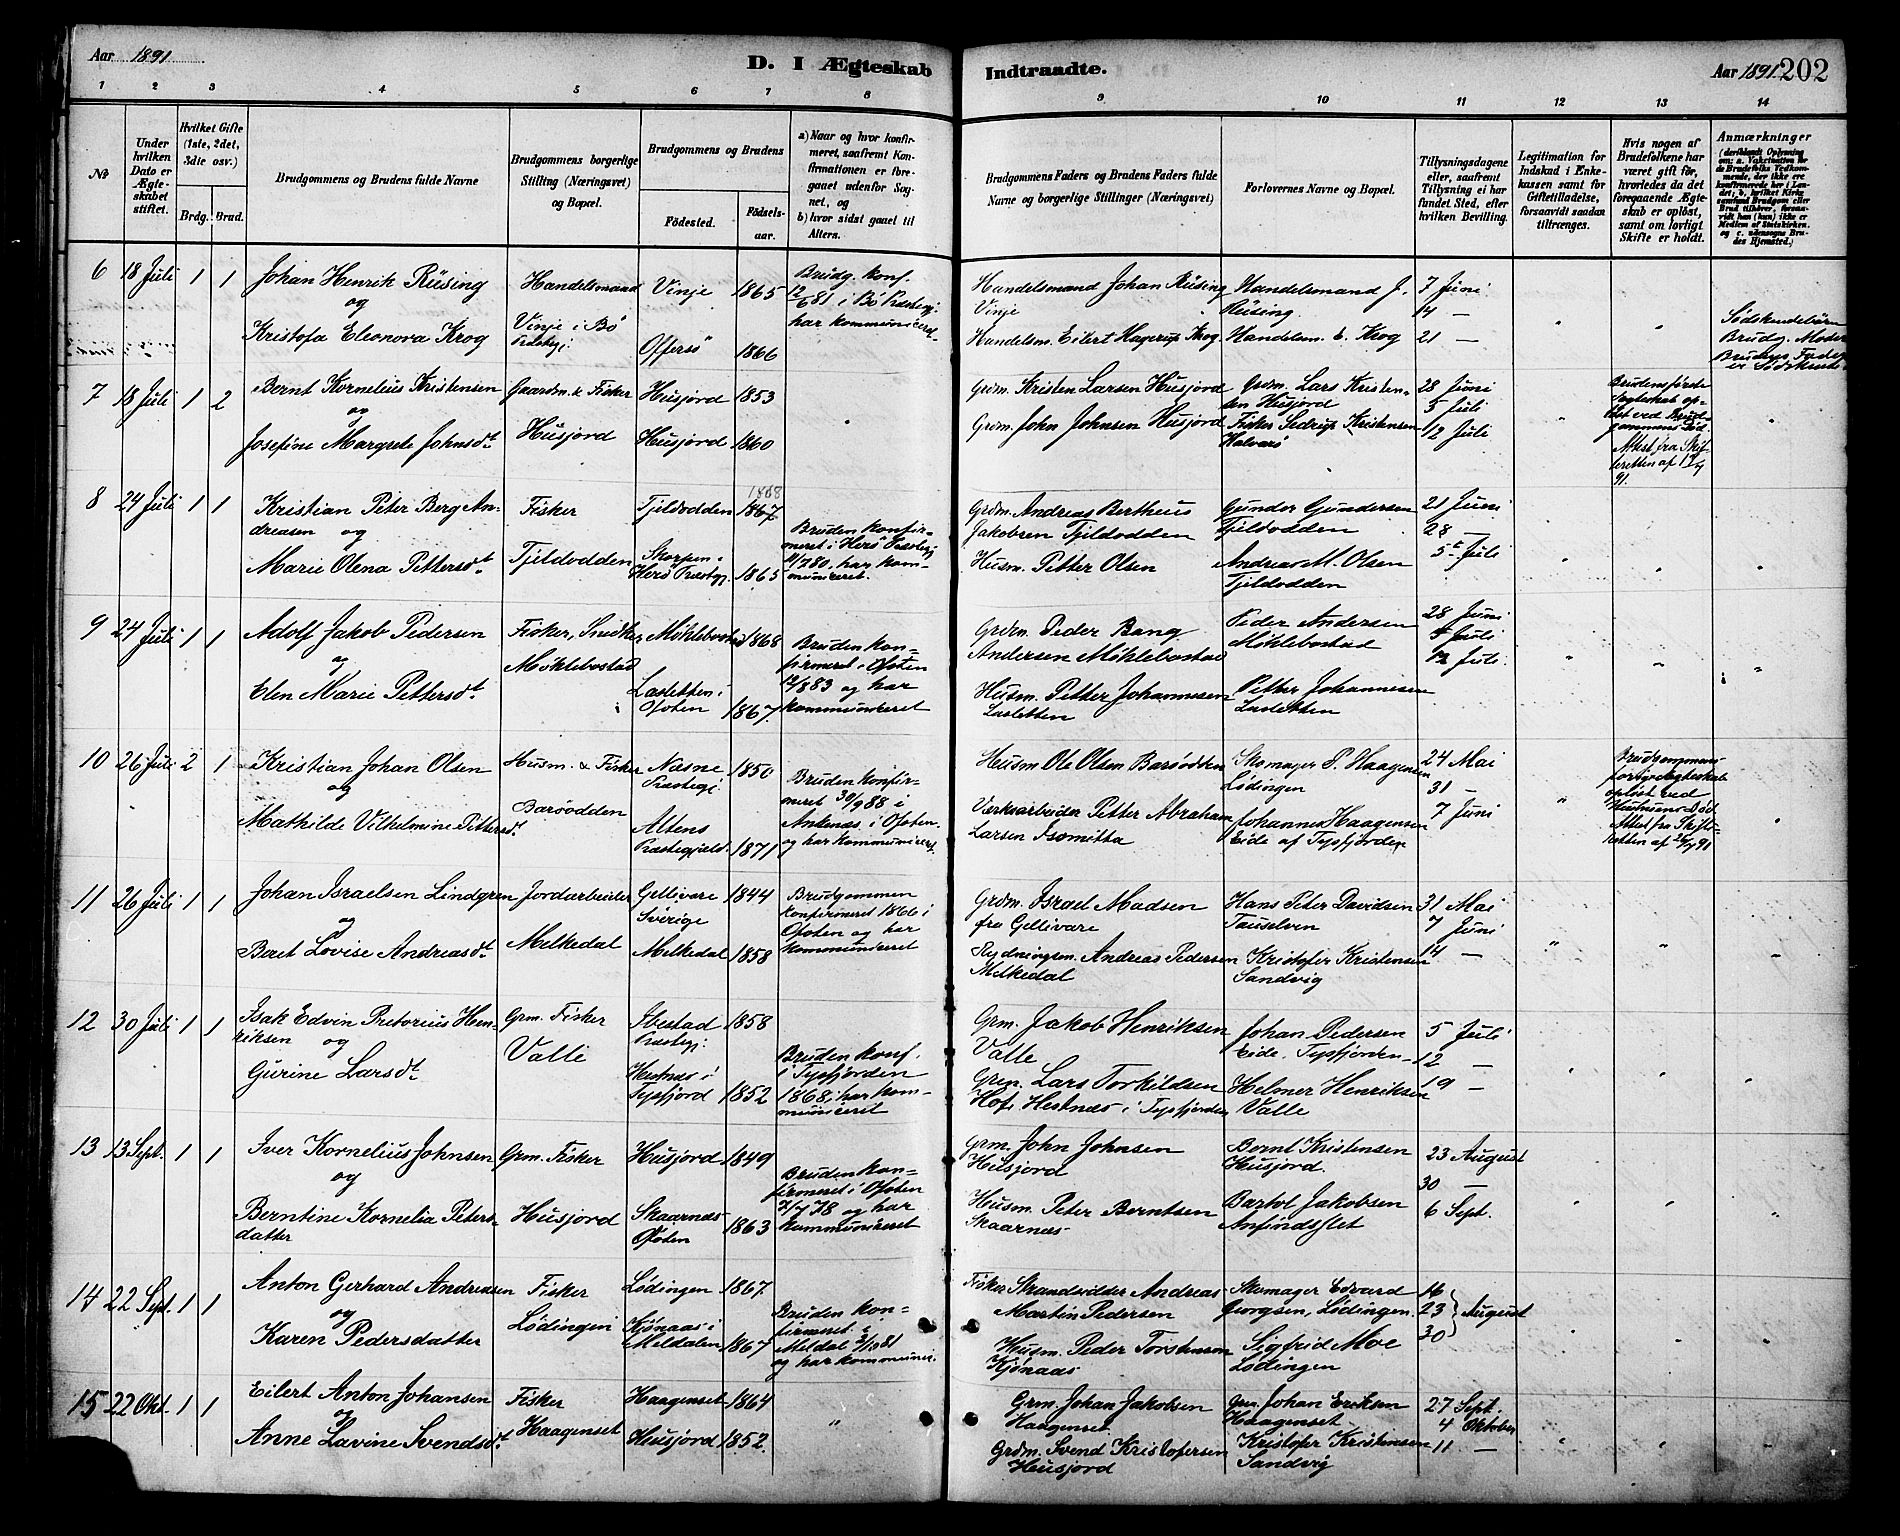 Aar 1891
D. I Ægteskab
Indtraadte.
Aar 1891
202
1 2 3 4 5 6 7 8 9 10 11 12 13 14
No
Under hvilken Dato er Ægteskabet stiftet.
Hvilket Gifte (1ste, 2det, 3die osv.)
Brdg. Brud.
Brudgommens og Brudens fulde Navne
Brudgommens borgerlige Stilling (Næringsvei) og Bopæl.
Brudgommens og Brudens
Fødested. Fødselsaar.
a) Naar og hvor konfirmeret, saafremt Konfirmationen er foregaaet udenfor Sognet, og
b) hvor sidst gaaet til Alters.
Brudgommens Faders og Brudens Faders fulde Navne og borgerlige Stillinger (Næringsvei)
Forlovernes Navne og Bopæl.
Tillysningsdagene eller, saafremt Tillysning ei har fundet Sted, efter hvilken Bevilling.
Legitimation for Indskud i Enkekassen samt for Giftetilladelse, forsaavidt saadan tiltrænges.
Hvis nogen af Brudefolkene har været gift før, hvorledes da det foregaaende Ægteskab er opløst, samt om lovligt Skifte er holdt.
Anmærkninger
6 18 Juli 1 1
Johan Henrik Rüsing
og
Kristofa Eleonora Krog
Handelsmand
Vinje i Bø Præstegj
Vinje 1865
Offersø 1866
Brudg. konf.
12/6 81 i Bø Præstegj.
har kommuniceret.
Handelsmand Johan Rüsing
Vinje
Handelsm. Eilert Hagerup Krog.
Handelsmand J.
Rüsing.
Handelsm. E. Krog
7 Juni
14 —
21 —
Sødskendebørn
Brudg. Moder
Brudens Fader
er Sødskende
7 18 Juli 1 2
Bernt Kornelius Kristensen
og
Josefine Margrete Johnsdt.
Gaardm. & Fisker
Husjord
Husjord 1853
Husjord 1860
Grdm. Kristen Larsen Husjord
Grdm. John Johnsen Husjord
Grdm. Lars Kristensen Husjord
Fisker Sedrup Kristensen
Halvarø
28 Juni
5 Juli
12 Juli
Brudens første
Ægteskab opløst ved Brudgommens Død.
Attest fra Skifteretten af
91.
8 24 Juli 1 1
Kristian Peter Berg Andreasen og
Marie Olena Pettersdt.
Fisker
Tjeldodden
Tjeldodden 1868 1867
Skorpen i
Herø Præstegj. 1865
Bruden konfirmeret i Herø Præstegj
11/7 80, har kommuniceret.
Grdm. Andreas Bertheus
Jakobsen Tjeldodden
Husm. Petter Olsen
Gunder Gundersen
Tjeldodden
Andreas M. Olsen
Tjeldodden
21 Juni
28 —
5t Juli
9 24 Juli 1 1
Adolf Jakob Pedersen
og
Elen Marie Pettersdt.
Fisker, Snedker
Møklebostad
Møklebostad 1868
Lastetten i
Ofoten 1867.
Bruden konfirmeret i Ofoten
12/8 83 og har
kommuniceret
Grdm. Peder Bang
Andersen Møklebostad
Husm. Petter Johannesen
Lastetten
Peder Andersen
Møklebostad
Petter Johannesen
Lastetten
28 Juni
5 Juli
12 Juli.
10 26 Juli 2 1
Kristian Johan Olsen
og
Mathilde Vilhelmine Pettersdt.
Husm. & Fisker
Barøodden
Næsne
Præstegj 1850
Altens
Præstegjeld. 1871
Bruden konfirmeret 30/9 88 i
Ankenæs i Ofoten
og har kommuniceret.
Husm Ole Olsen Barøodden
Værksarbeider Petter Abraham
Larsen
Skomager P. Haagensen
Lødingen
Johannes Haagensen
Eide af Tysfjorden
24 Mai
31 —
7 Juni
Brudgommens
forrige Ægteskab
opløst ved
Hustruens Død
Attest fra Skifteretten af
11 26 Juli 1 1
Johan Israelsen Lindgren
og
Beret Lovise Andreasdt.
Jordarbeider
Melkedal
Gellivare
Sverige 1844
Melkedal 1858
Brudgommen
konfirmeret 1866 i
Ofoten og har
kommuniceret
Grdm. Israel Madsen
fra Gellivare
Rydningsm. Andreas Pedersen
Melkedal
Hans Peter Davidsen
Tauselven
Kristofer Kristensen
Sandvig
31 Mai
7 Juni
14 —
12 30 Juli 1 1
Isak Edvin Pretorius Henriksen og
Gurine Larsdt.
Grm. Fisker
Valle
Ibestad
Præstegj: 1858
Hestnes i
Tysfjord 1852
Bruden konf.
i Tysfjorden
1868, har kommuniceret
Grm. Jakob Henriksen
Valle
Grm. Lars Torkildsen
Hof, Hestnæs i Tysfjorden
Johan Pedersen
Eide, Tysfjorden
Helmer Henriksen
Valle
5 Juli
12 —
19 —
13 13 Sept. 1 1
Iver Kornelius Johnsen
og
Berntine Kornelia Petersdatter
Grm. Fisker
Husjord
Husjord 1849
Skaarnæs
Ofoten 1863
Bruden konfirmeret i Ofoten
21/7 78 og har
kommuniceret
Grm. John Johnsen
Husjord
Husm. Peter Berntsen
Skaarnæs
Bernt Kristensen
Husjord.
Bartol Jakobsen
Anfindslet
23 August
30 —
6 Sept.
14 22 Sept. 1 1
Anton Gerhard Andreasen
og
Karen Pedersdatter
Fisker
Lødingen
Lødingen 1867
Kjønaas i
Meldalen 1867
Bruden konfirmeret i
Meldal 2/10 81
og har kommunic.
Fisker Strandsidder Andreas
Martin Pedersen
Husm. Peder Torstensen
Kjønaas
Skomager Edvard
Georgsen, Lødingen.
Sigfrid Moe
Lødingen
16
23 August
30
15 22 Okt. 1 1
Eilert Anton Johansen
og
Anne Lavine Svendsdt.
Fisker
Haagenset
Haagenset 1864
Husjord 1852.
"
Grm. Johan Jakobsen
Haagenset
Grdm. Svend Kristofersen
Husjord
Grm. Johan Eriksen
Haagenset
Kristofer Kristensen
Sandvig
27 Sept.
4 Oktober
11 —